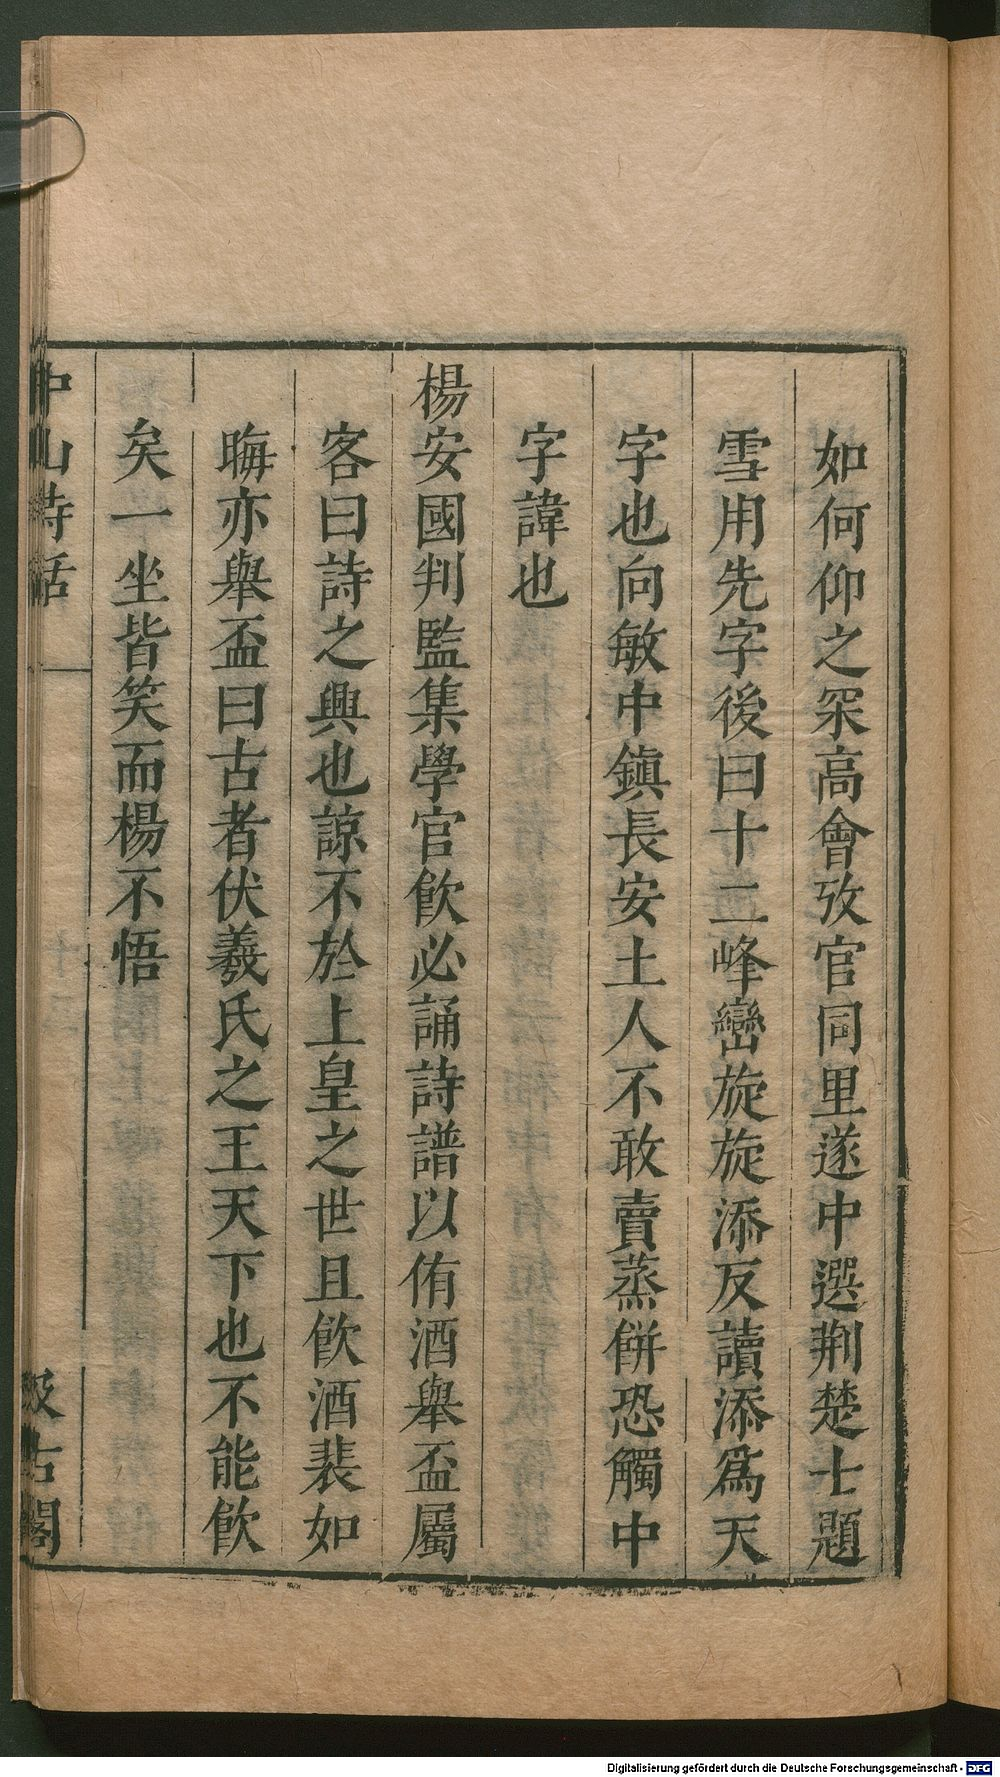 如何仰之罙高會攷官同里遂中選荆楚士題
雪用先字後曰十二峰巒旋旋添反讀添爲天
字也向敏中鎮長安土人不敢賣蒸餅恐觸中
字諱也
楊安國判監集學官飲必誦詩譜以侑酒舉盃屬
客曰詩之興也諒不於上皇之世且飲酒裴如
晦亦舉盃曰古者伏羲氏之王天下也不能飲
矣一坐皆笑而楊不悟
中山詩話
汲古閣
Digitalisierung gefördert durch die Deutsche Forschungsgemeinschaft - DFG